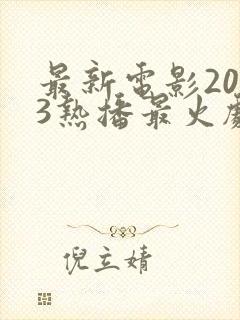 最新電影20
3熱播最火劇
倪立婧